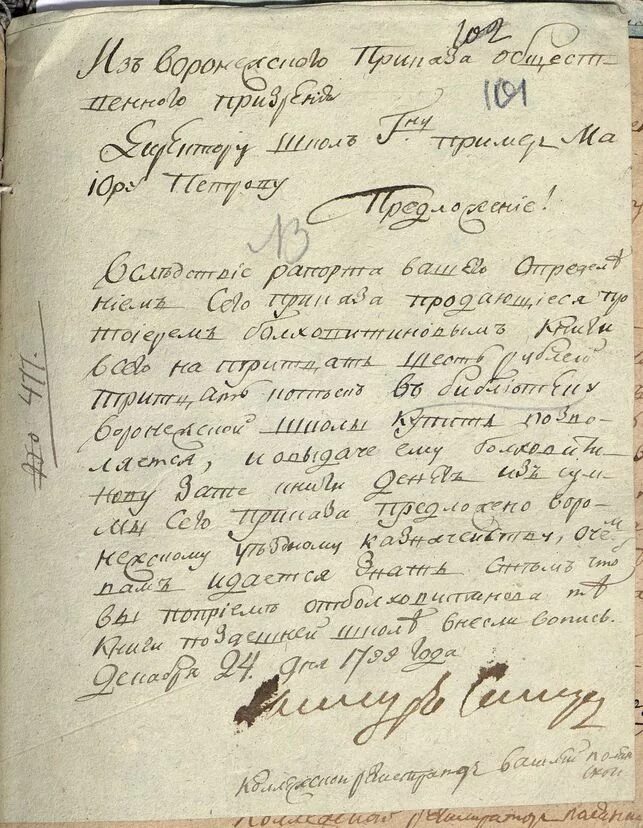 102
Изъ воронежского Приказа общест-
венного призрения
101
Директору школъ Гну примеръ Ма
iору Петрову
Предложенiе!
13
Вследствiе рапорта вашего определѣ
нiемъ сего приказа продающiеся про
тоiереемъ болховитиновымъ книги
всего на тритцать шесть рублей
тритцать копѣекъ въ библiотеку
воронежской школы купить позво-
ляется, и овыдаче ему болховити-
нову за те книги денегъ изъ сум-
мы сего приказа предложено воро-
нежскому уѣздному казначейству, очемъ
вамъ идается знать стѣмъ что
вы поприемѣ отболховитинова тѣ
книги поздешней школѣ внесли вопись.
Декабря 24. дня 1799 года
Коллежской регистраторъ
№ 477.